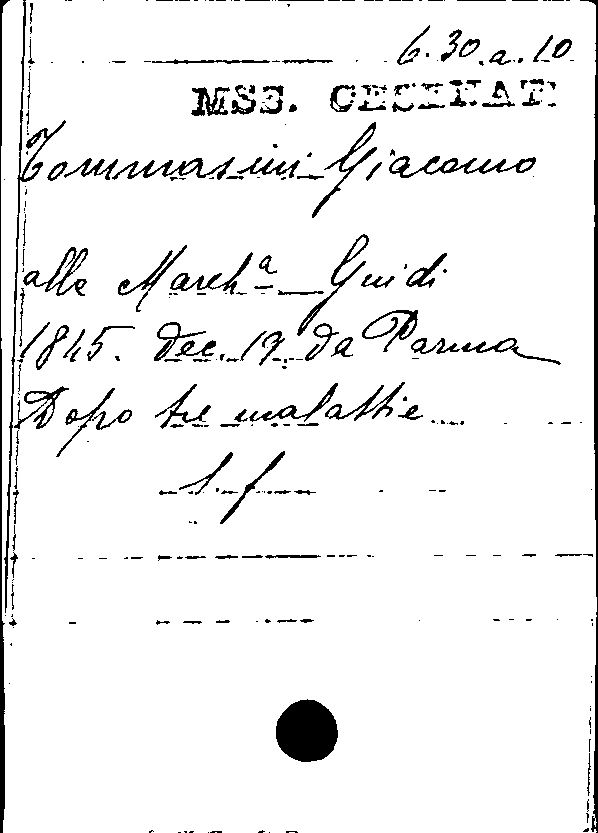 6.30.a.10
MSS. CESENATI
Tommasini Giacomo
alla March.ª Guidi
1845. dec. 19. da Parma
Dopo tre malattie
S. f